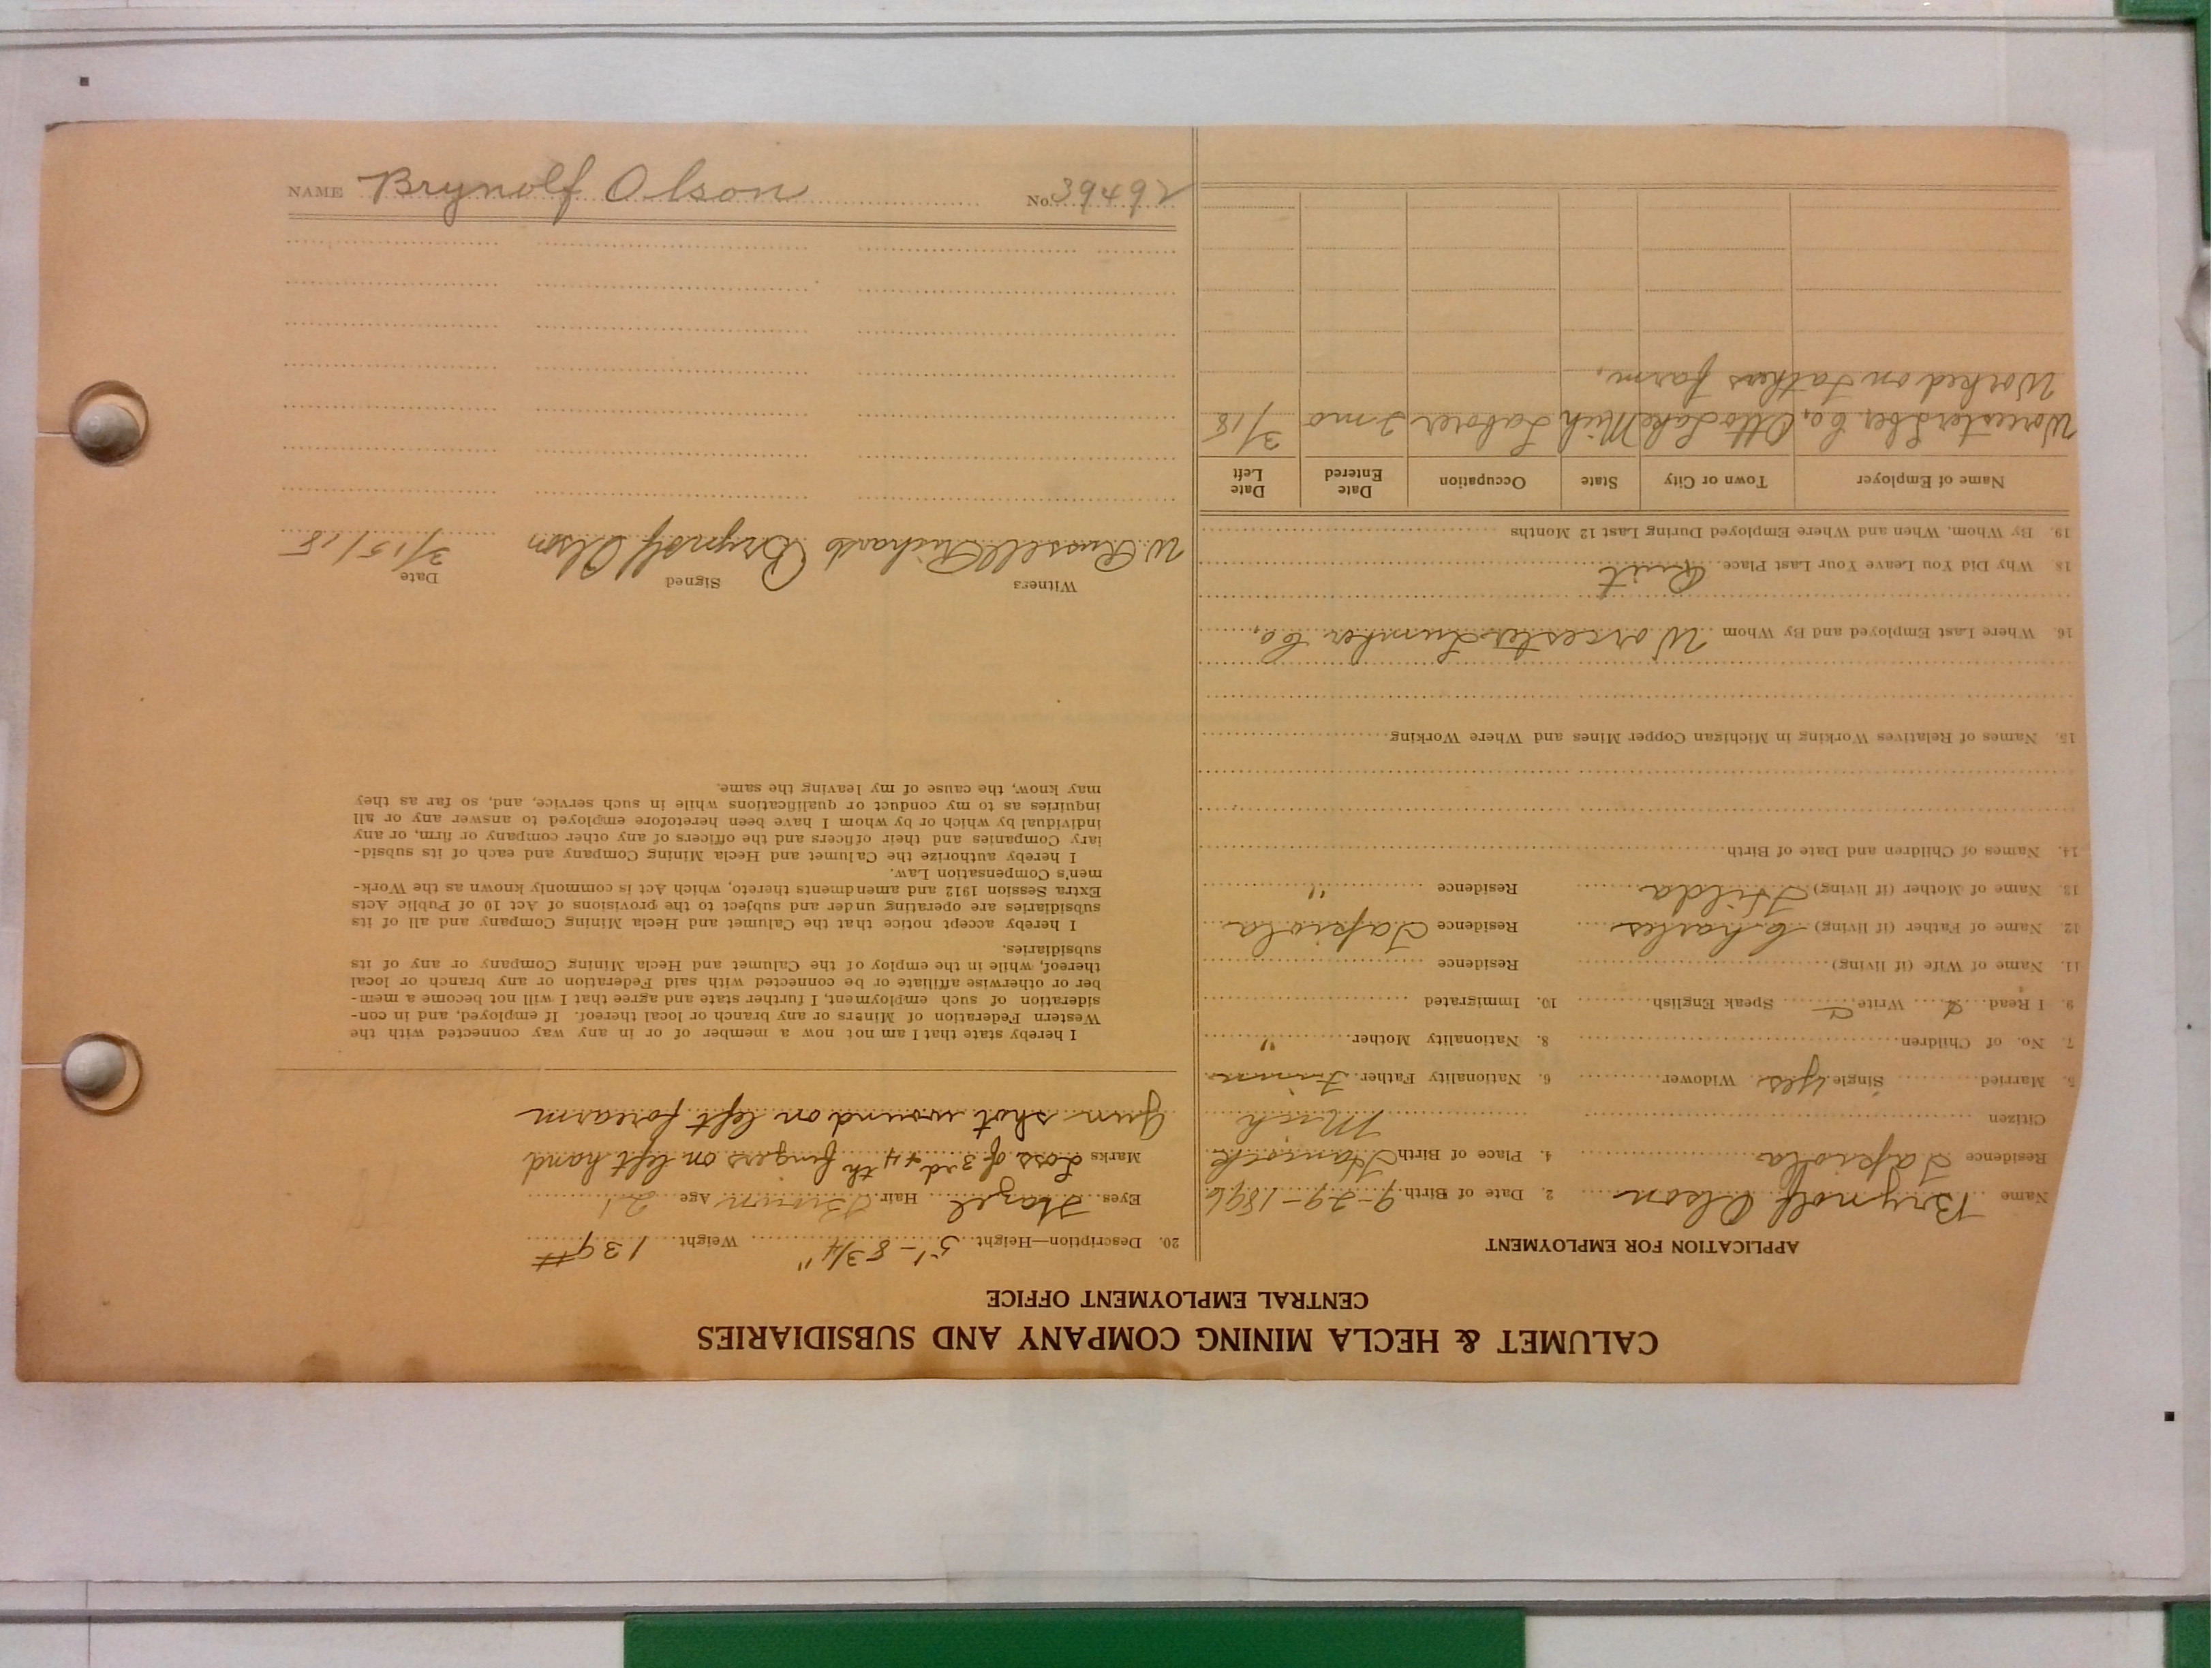 CALUMET & HECLA MINING COMPANY AND SUBSIDIARIES
CENTRAL EMPLOYMENT OFFICE
APPLICATION FOR EMPLOYMENT
Name Brynolf Olson 2. Date of Birth 9-29-1896
Residence Tapiola 4. Place of Birth Hancock
Citizen Mich
5. Married Single yes Widower 6. Nationality Father Finn
7. No. of Children 8. Nationality Mother "
9. I Read Write Speak English 10. Immigrated
11. Name of Wife (if living) Residence
12. Name of Father (if living) Charles Residence Tapiola
13. Name of Mother (if living) Hilda Residence "
14. Names of Children and Date of Birth
15. Names of Relatives Working in Michigan Copper Mines and Where Working
16. Where Last Employed and By Whom Worcester Lumber Co.
18. Why Did You Leave Your Last Place Quit
19. By Whom, When and Where Employed During Last 12 Months
Name of Employer Town or City State Occupation Date Entered Date Left
Worcester Lber Co, Otto Lake Mich Laborer 2 mo 3/18
Worked on Fathers farm.
20. Description—Height 5'-8 3/4" Weight 139#
Eyes Hazel Hair Brown Age 21
Marks Loss of 3rd + 4th fingers on left hand
Gun shot wound on left forearm
I hereby state that I am not now a member of or in any way connected with the
Western Federation of Miners or any branch or local thereof. If employed, and in con-
sideration of such employment, I further state and agree that I will not become a mem-
ber or otherwise affiliate or be connected with said Federation or any branch or local
thereof, while in the employ of the Calumet and Hecla Mining Company or any of its
subsidiaries.
I hereby accept notice that the Calumet and Hecla Mining Company and all of its
subsidiaries are operating under and subject to the provisions of Act 10 of Public Acts
Extra Session 1912 and amendments thereto, which Act is commonly known as the Work-
men's Compensation Law.
I hereby authorize the Calumet and Hecla Mining Company and each of its subsid-
iary Companies and their officers and the officers of any other company or firm, or any
individual by which or by whom I have been heretofore employed to answer any or all
inquiries as to my conduct or qualifications while in such service, and, so far as they
may know, the cause of my leaving the same.
Witness Signed Date
W. Russell Richards Brynolf Olson 3/15/18
NAME Brynolf Olson No. 39492